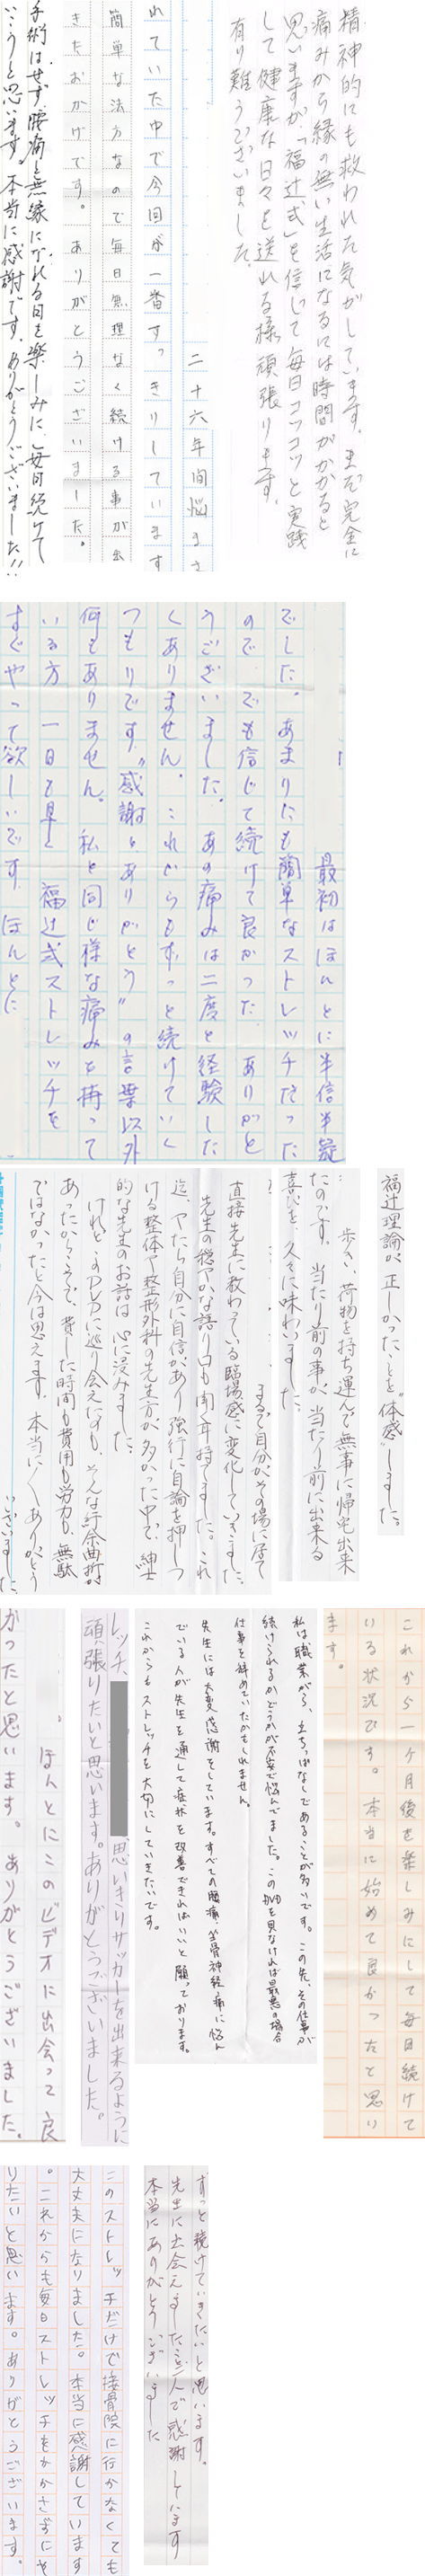 精神的にも救われた気がしています。まだ完全に
痛みから縁の無い生活になるには時間がかかると
思いますが、「福辻式」を信じて毎日コツコツと実践
して健康な日々を送れる様頑張ります。
有り難うございました。
二十六年間悩まさ
れていた中で今回が一番すっきりしています
簡単な方法なので毎日無理なく続ける事が出
きたおかげです。ありがとうございました。
手術はせず、腰痛と無縁になれる日を楽しみに、毎日続けて
いこうと思います。本当に感謝です。ありがとうございました!!
最初はほんとに半信半疑
でした。あまりにも簡単なストレッチだった
ので でも信じて続けて良かった ありがと
うございました。あの痛みは二度と経験した
くありません。これからもずっと続けていく
つもりです。“感謝とありがとう”の言葉以外
何もありません。私と同じ様な痛みを持って
いる方 一日も早く 福辻式ストレッチを
すぐやって欲しいです ほんとに
福辻理論が、正しかったことを“体感”しました。
歩き、荷物を持ち運んで無事に帰宅出来
たのです。当たり前の事が、当たり前に出来る
喜びを、久々に味わいました。
まるで自分がその場に居て
直接先生に教わっている臨場感に変化していきました。
先生の穏やかな語り口も聞く耳持てました。これ
迄、やたら自分に自信があり強行に自論を押しつ
ける整体や整形外科の先生方が多かった中で、紳士
的な先生のお話は心に浸みました。
けれど、このDVDに巡り会えたのも、そんな紆余曲折が
あったからこそで、費した時間も費用も労力も、無駄
ではなかったと今は思えます。本当に〱ありがとう
ございました。
これから一ヶ月後を楽しみにして毎日続けて
いる状況です。本当に始めて良かったと思い
ます。
私は職業がら、立ちっぱなしであることが多いです。この先、その仕事が
続けられるかどうかが不安で悩んでました。このDVDを見なければ最悪の場合
仕事を辞めていたかもしれません。
先生には大変感謝をしています。すべての腰痛・坐骨神経痛に悩ん
でいる人が先生を通して症状を改善できればいいと願っております。
これからもストレッチを大切にしていきたいです。
レッチ、思いきりサッカーを出来るように
頑張りたいと思います。ありがとうございました。
ほんとにこのビデオに出会って良
かったと思います。ありがとうございました。
ずっと続けていきたいと思います。
先生に出会えました恵んで感謝しています
本当にありがとうございました
このストレッチだけで接骨院に行かなくても
大丈夫になりました。本当に感謝しています
。これからも毎日ストレッチをかかさずにや
りたいと思います。ありがとうございます。